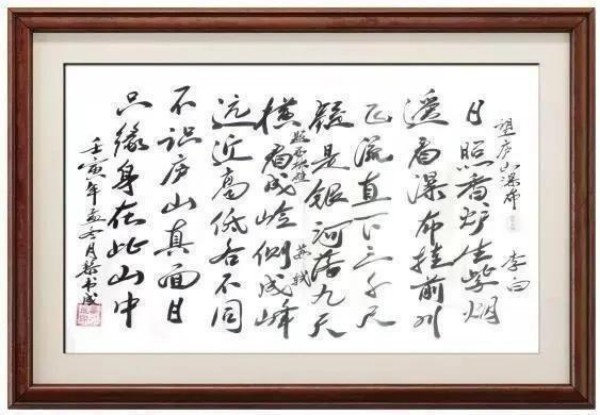 望庐山瀑布 李白
日照香炉生紫烟
遥看瀑布挂前川
飞流直下三千尺
疑是银河落九天
题西林壁 苏轼
横看成岭侧成峰
远近高低各不同
不识庐山真面目
只缘身在此山中
壬寅年 冬月 书成